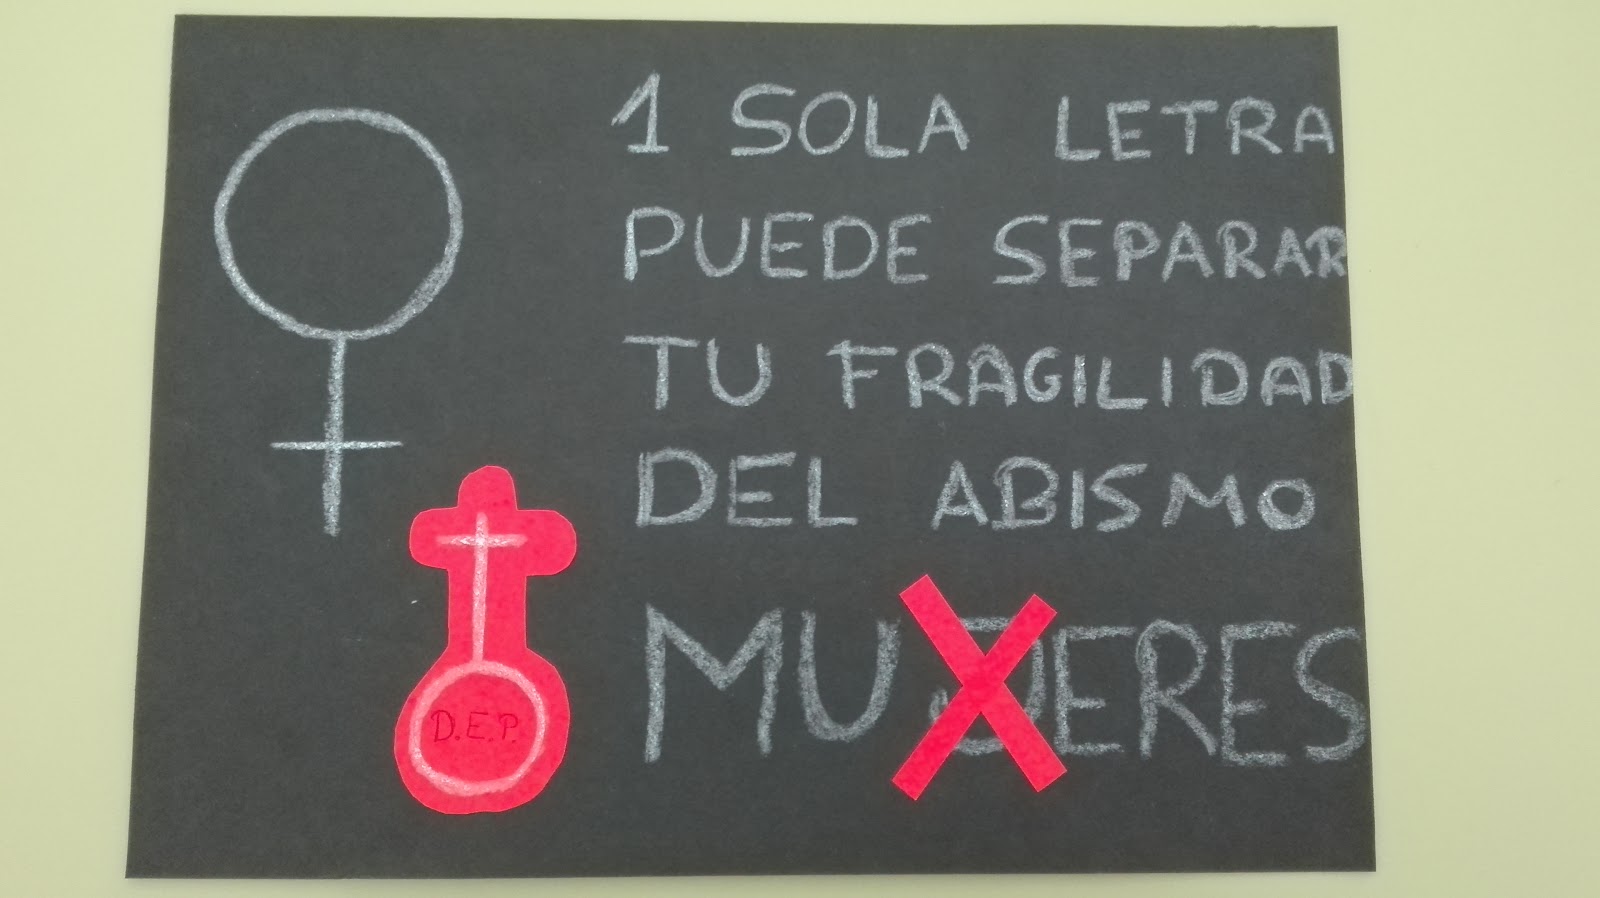 1 SOLA LETRA
PUEDE SEPARAR
TU FRAGILIDAD
DEL ABISMO
MUJERES
D.E.P.